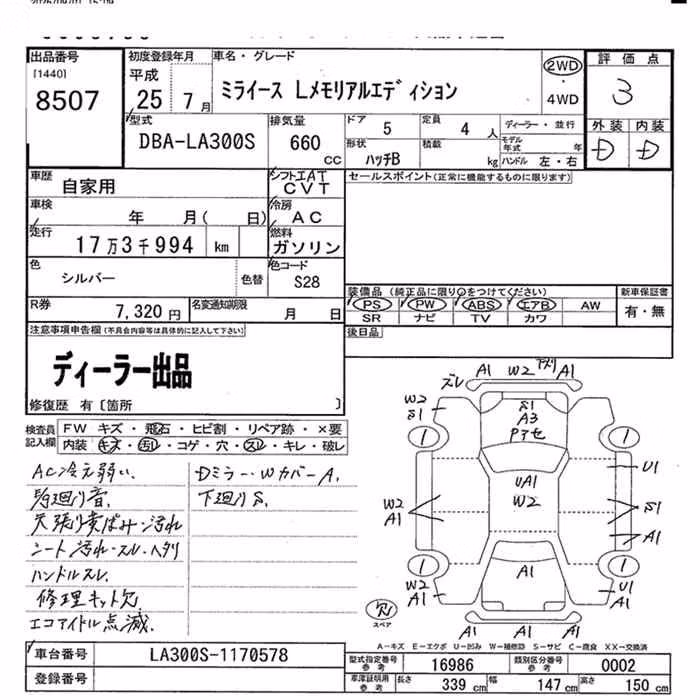 出品番号 初度登録年月 車名・グレード 評価点
[1440] 平成 2WD
8507 25 7月 ミライース Lメモリアルエディション ・ 3
4WD
型式 排気量 ドア 5 定員 4 人 ディーラー・並行 外装 内装
DBA-LA300S 660 CC 形状 ハッチB 積載 kg モデル年式 年 D D
ハンドル 左・右
車歴 自家用 シフト エAT CVT セールスポイント(正常に機能するものに限ります)
車検 年 月( 日) 冷房 AC
走行 17万3千994 km 燃料 ガソリン
色 シルバー 色替 色コード S28
装備品(純正品に限り○をつけてください) 新車保証書
PS PW ABS エアB AW 有・無
SR ナビ TV カワ
R券 7,320円 名変通知期限 月 日
後日品
注意事項申告欄(不具合内容等は具体的に記入して下さい)
ディーラー出品
修復歴 有〔箇所 〕
検査員記入欄 FW キズ・飛石・ヒビ割・リペア跡・×要
内装 キズ・汚れ・コゲ・穴・スレ・キレ・破レ
AC冷え弱い. Dミラー・WカバーA.
下廻りS.
天張り黄ばみ・汚れ
シート汚れ・スレ・ヘタリ
ハンドルスレ.
修理キット欠
エコアイドル点滅.
ズレ A1 W2 A1
W2 S1 S1
A3
UA1 U1
W2
W2 A1 S1
A1
W2 A1 A1 U1
A1
A1 A1 A1
スペア
A－キズ E－エクボ U－凹み W－補修跡 S－サビ C－腐食 XX－交換済
車台番号 LA300S-1170578 型式指定番号 参考 16986 類別区分番号 参考 0002
登録番号 車庫証明用 参考 長さ 339 cm 幅 147 cm 高さ 150 cm